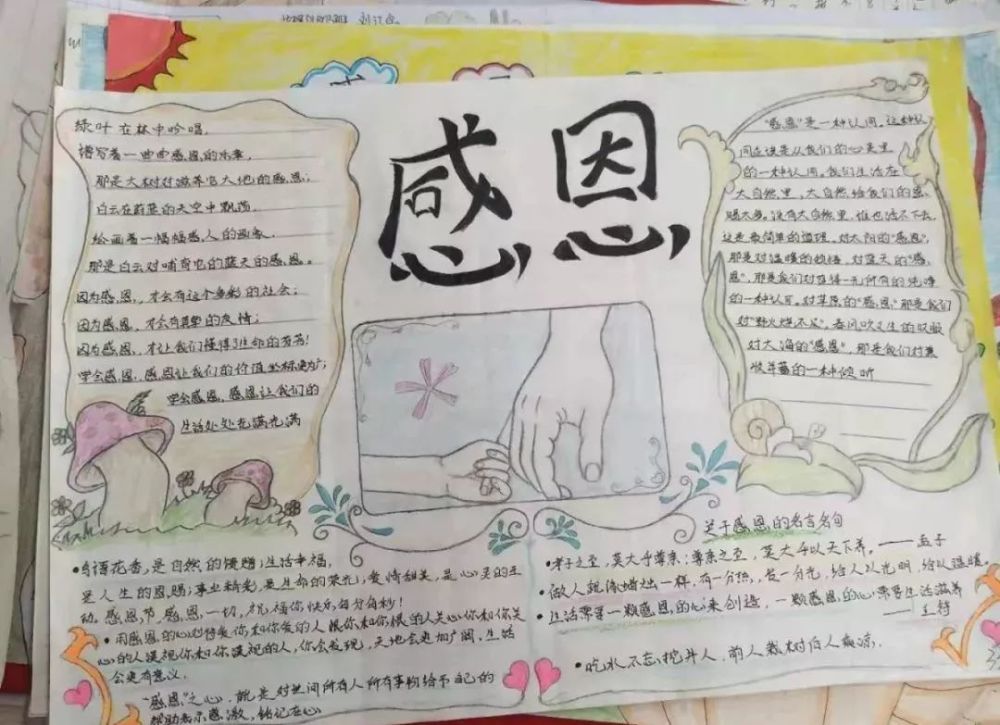 感恩
绿叶在林中吟唱，
谱写着一曲曲感恩的乐章，
那是大树对滋养它大地的感恩；
白云在蔚蓝的天空中飘荡，
绘画着一幅幅感人的画象，
那是白云对哺育它的蓝天的感恩。
因为感恩，才会有这个多彩的社会；
因为感恩，才会有真挚的友情；
因为感恩，才让我们懂得3生命的真谛！
学会感恩，感恩让我们的价值坐标更广；
学会感恩，感恩让我们的
生活处处充满光满
“感恩”是一种认同。这种认
同应该是从我们的心灵里
的一种认同。我们生活在
大自然里，大自然给我们的恩
赐太多。没有大自然里，谁也活不下去，
这是最简单的道理。对太阳的“感恩”，
那是对温暖的领悟，对蓝天的“感
恩”，那是我们对蓝得一无所有的纯净
的一种认可。对草原的“感恩”那是我们
对“野火烧不尽”，春风吹又生的叹服
对大海的“感恩”，那是我们对兼
收并蓄的一种倾听
•鸟语花香，是自然的馈赠；生活幸福，
是人生的恩赐；事业精彩，是生命的荣光；爱情甜美，是心灵的互
动。感恩节，感恩一切，祝福你快乐每分每秒！
•用感恩的心对待爱你和你爱的人恨你和你恨的人关心你和你关
心的人漠视你和你漠视的人，你会发现，天地会更加广阔，生活
会更有意义。
“感恩”之心，就是对世间所有人所有事物给予自己的
帮助表示感激，铭记在心
关于感恩的名言名句
•孝子之至，莫大乎尊亲；尊亲之至，莫大乎以天下养。——孟子
•做人就像蜡烛一样，有一分热，发一分光，给人以光明，给以温暖。
•生活需要一颗感恩的心来创造，一颗感恩的心需要生活滋养
——王符
•吃水不忘挖井人，前人栽树后人乘凉，